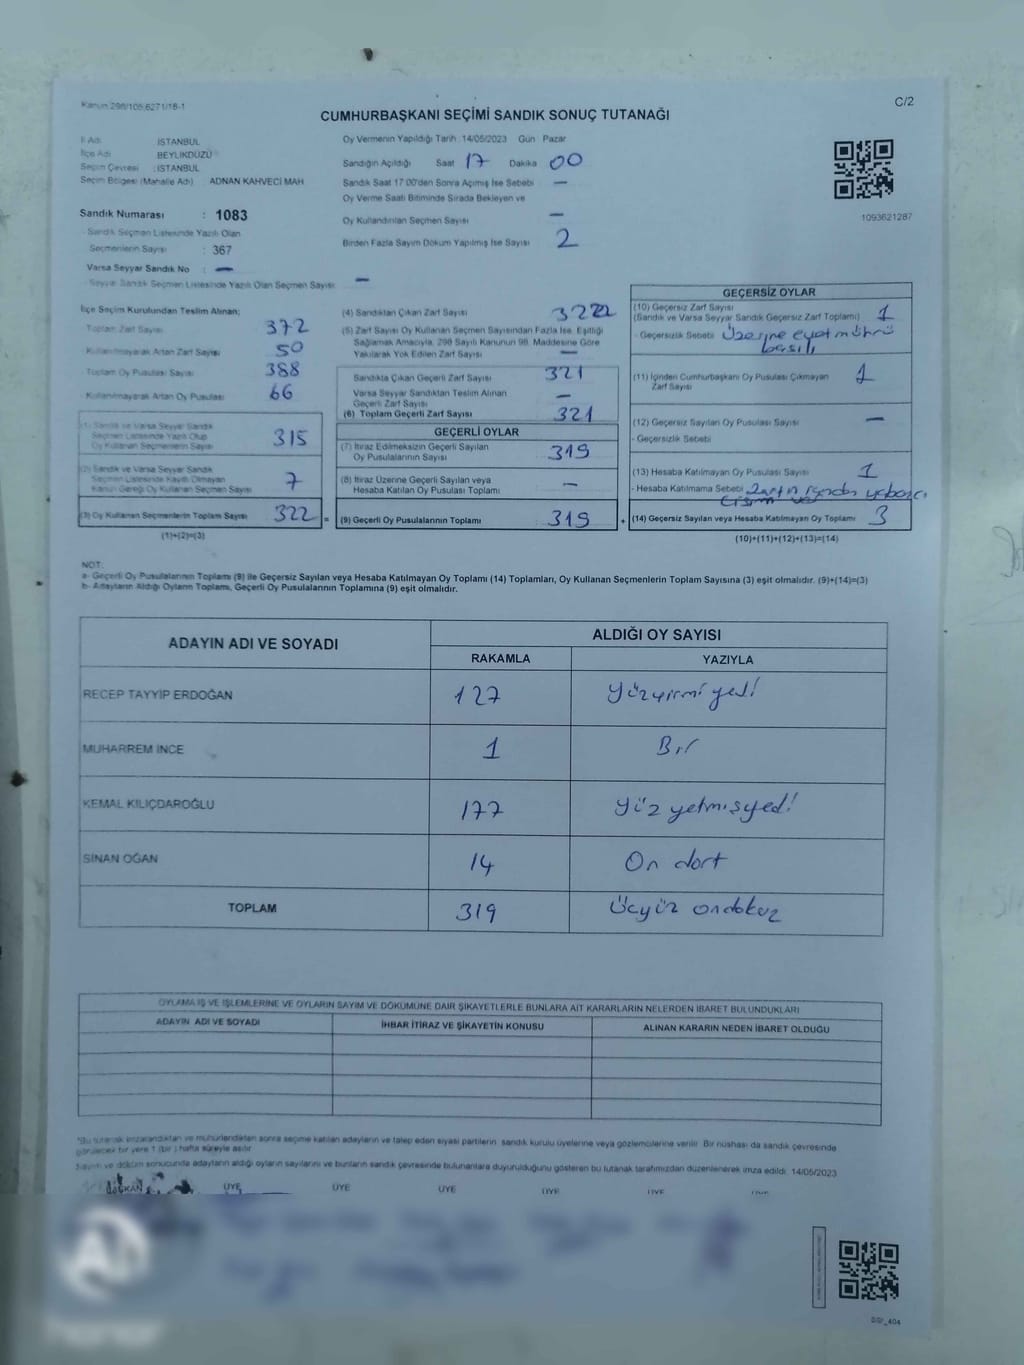 Kanun 298/105,6271/18-1
C/2
CUMHURBAŞKANI SEÇİMİ SANDIK SONUÇ TUTANAĞI
İl Adı : İSTANBUL
İlçe Adı BEYLİKDÜZÜ
Seçim Çevresi : İSTANBUL
Seçim Bölgesi (Mahalle Adı) ADNAN KAHVECİ MAH
Sandık Numarası : 1083
Sandık Seçmen Listesinde Yazılı Olan
Seçmenlerin Sayısı : 367
Varsa Seyyar Sandık No : —
Seyyar Sandık Seçmen Listesinde Yazılı Olan Seçmen Sayısı —
Oy Vermenin Yapıldığı Tarih :14/05/2023 Gün Pazar
Sandığın Açıldığı Saat 17 Dakika 00
Sandık Saat 17:00'den Sonra Açılmış İse Sebebi —
Oy Verme Saati Bitiminde Sırada Bekleyen ve
Oy Kullandırılan Seçmen Sayısı —
Birden Fazla Sayım Döküm Yapılmış İse Sayısı 2
1093621287
İlçe Seçim Kurulundan Teslim Alınan;
Toplam Zarf Sayısı 372
Kullanılmayarak Artan Zarf Sayısı 50
Toplam Oy Pusulası Sayısı 388
Kullanılmayarak Artan Oy Pusulası 66
(1) Sandık ve Varsa Seyyar Sandık
Seçmen Listesinde Yazılı Olup
Oy Kullanan Seçmenlerin Sayısı 315
(2) Sandık ve Varsa Seyyar Sandık
Seçmen Listesinde Kayıtlı Olmayan
Kanun Gereği Oy Kullanan Seçmen Sayısı 7
(3) Oy Kullanan Seçmenlerin Toplam Sayısı 322 =
(1)+(2)=(3)
(4) Sandıktan Çıkan Zarf Sayısı
(5) Zarf Sayısı Oy Kullanan Seçmen Sayısından Fazla İse, Eşitliği
Sağlamak Amacıyla, 298 Sayılı Kanunun 98. Maddesine Göre
Yakılarak Yok Edilen Zarf Sayısı —
Sandıkta Çıkan Geçerli Zarf Sayısı 321
Varsa Seyyar Sandıktan Teslim Alınan
Geçerli Zarf Sayısı —
(6) Toplam Geçerli Zarf Sayısı 321
GEÇERLİ OYLAR
(7) İtiraz Edilmeksizin Geçerli Sayılan
Oy Pusulalarının Sayısı 319
(8) İtiraz Üzerine Geçerli Sayılan veya
Hesaba Katılan Oy Pusulası Toplamı —
(9) Geçerli Oy Pusulalarının Toplamı 319 +
GEÇERSİZ OYLAR
(10) Geçersiz Zarf Sayısı
(Sandık ve Varsa Seyyar Sandık Geçersiz Zarf Toplamı) 1
- Geçersizlik Sebebi Üzerine evet mührü
basılı
(11) İçinden Cumhurbaşkanı Oy Pusulası Çıkmayan
Zarf Sayısı 1
(12) Geçersiz Sayılan Oy Pusulası Sayısı —
- Geçersizlik Sebebi
(13) Hesaba Katılmayan Oy Pusulası Sayısı 1
- Hesaba Katılmama Sebebi Zarfın içinden yabancı
(14) Geçersiz Sayılan veya Hesaba Katılmayan Oy Toplamı 3
(10)+(11)+(12)+(13)=(14)
NOT:
a- Geçerli Oy Pusulalarının Toplamı (9) ile Geçersiz Sayılan veya Hesaba Katılmayan Oy Toplamı (14) Toplamları, Oy Kullanan Seçmenlerin Toplam Sayısına (3) eşit olmalıdır. (9)+(14)=(3)
b- Adayların Aldığı Oyların Toplamı, Geçerli Oy Pusulalarının Toplamına (9) eşit olmalıdır.
ADAYIN ADI VE SOYADI
ALDIĞI OY SAYISI
RAKAMLA YAZIYLA
RECEP TAYYİP ERDOĞAN 127 Yüzyirmi yedi
MUHARREM İNCE 1 Bir
KEMAL KILIÇDAROĞLU 177 Yüz yetmişyedi
SİNAN OĞAN 14 On dört
TOPLAM 319 Üçyüz ondokuz
OYLAMA İŞ VE İŞLEMLERİNE VE OYLARIN SAYIM VE DÖKÜMÜNE DAİR ŞİKAYETLERLE BUNLARA AİT KARARLARIN NELERDEN İBARET BULUNDUKLARI
ADAYIN ADI VE SOYADI İHBAR İTİRAZ VE ŞİKAYETİN KONUSU ALINAN KARARIN NEDEN İBARET OLDUĞU
*Bu tutanak imzalandıktan ve mühürlendikten sonra seçime katılan adayların ve talep eden siyasi partilerin sandık kurulu üyelerine veya gözlemcilerine verilir. Bir nüshası da sandık çevresinde
görülecek bir yere 1 (bir) hafta süreyle asılır
Sayım ve döküm sonucunda adayların aldığı oyların sayılarını ve bunların sandık çevresinde bulunanlara duyurulduğunu gösteren bu tutanak tarafımızdan düzenlenerek imza edildi. 14/05/2023
ÜYE ÜYE ÜYE ÜYE ÜYE
honor